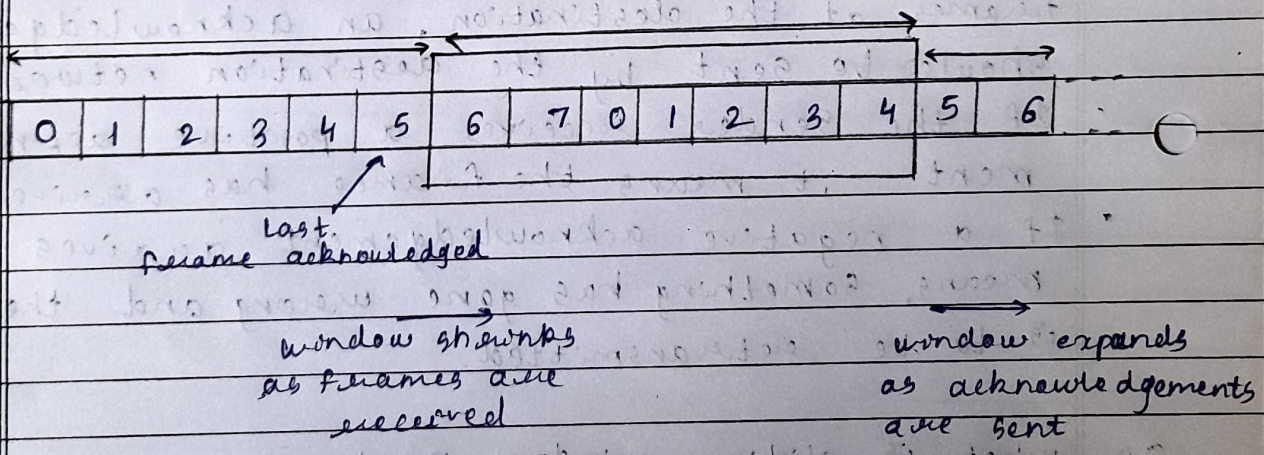 0 1 2 3 4 5 6 7 0 1 2 3 4 5 6
Last
frame acknowledged
window shrinks
as frames are
received
window expands
as acknowledgements
are sent